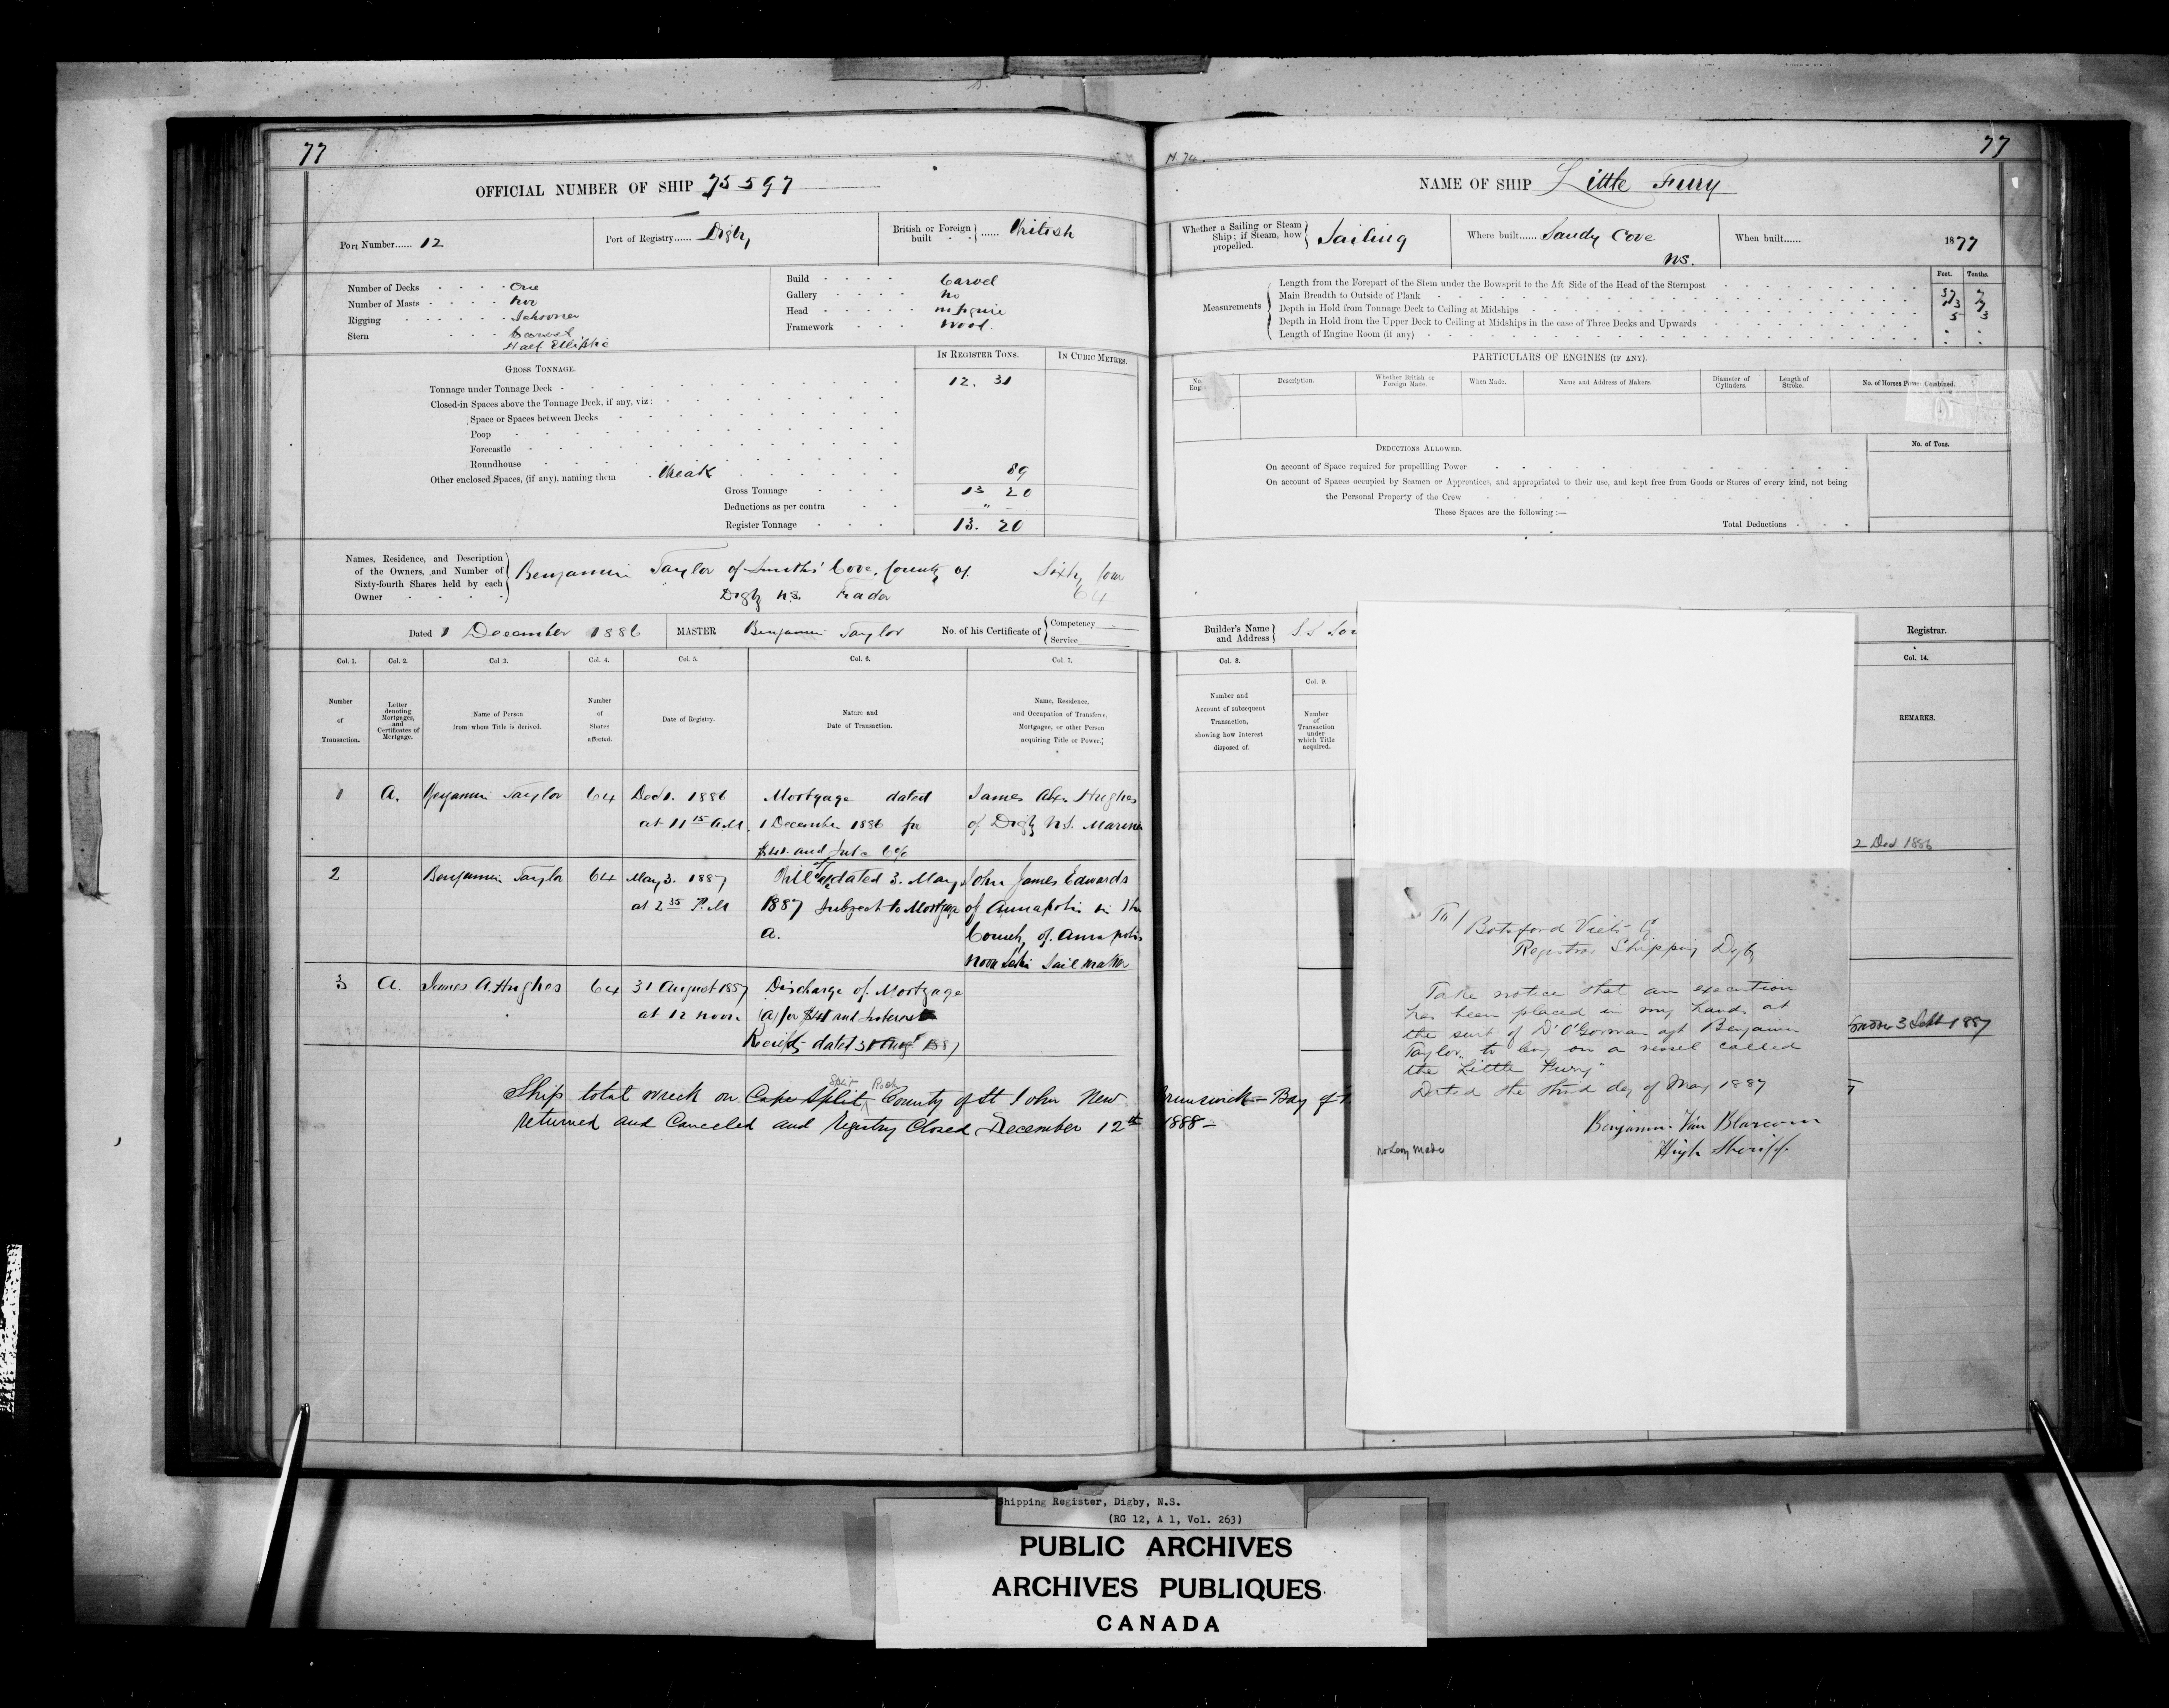 77
OFFICIAL NUMBER OF SHIP 75597
Port Number...... 12
Port of Registry...... Digby
British or Foreign built ...... British
Number of Decks One
Number of Masts Two
Rigging Schooner
Stern
Half Elliptic
Build Carvel
Gallery No
Head
Framework Wood.
IN REGISTER TONS.
IN CUBIC METRES.
GROSS TONNAGE.
Tonnage under Tonnage Deck 12. 31
Closed-in Spaces above the Tonnage Deck, if any, viz:
Space or Spaces between Decks
Poop
Forecastle
Roundhouse
Other enclosed Spaces, (if any), naming them Break 89
Gross Tonnage 13 20
Deductions as per contra "
Register Tonnage 13. 20
Names, Residence, and Description
of the Owners, and Number of
Sixty-fourth Shares held by each
Owner
Benjamin Taylor of Smiths Cove, County of Sixty four
Digby N.S. Trader 64
Dated 1 December 1886 MASTER Benjamin Taylor No. of his Certificate of Competency Service
Col. 1. Col. 2. Col 3. Col. 4. Col. 5. Col. 6. Col 7.
Number of Transaction.
Letter denoting Mortgages, and Certificates of Mortgage.
Name of Person from whom Title is derived.
Number of Shares affected.
Date of Registry.
Nature and Date of Transaction.
Name, Residence, and Occupation of Transferee, Mortgagee, or other Person acquiring Title or Power.
1 A. Benjamin Taylor 64 Dec 1. 1886 Mortgage dated James Alex Hughes
at 11 15 A.M. 1 December 1886 for of Digby N.S. Mariner
$41. and Int @ 6%
2 Benjamin Taylor 64 May 3. 1887 dated 3. May John James Edwards
at 2 35 P.M 1887 Subject to Mortgage of Annapolis in the
A. County of Annapolis
Nova Scotia Sail maker
3 A. James A. Hughes 64 31 August 1887 Discharge of Mortgage
at 12 noon (A) for $41 and Interest
Receipt dated 31 Augt 1887
Split Rock
Ship total wreck on Cape Split County of St John New Brunswick - Bay of
returned and Canceled and Registry Closed December 12th 1888 -
77
NAME OF SHIP Little Fury
Whether a Sailing or Steam Ship; if Steam, how propelled. Sailing
Where built...... Sandy Cove
NS.
When built...... 1877
Feet. Tenths.
Measurements
Length from the Forepart of the Stem under the Bowsprit to the Aft Side of the Head of the Sternpost 37 7
Main Breadth to Outside of Plank 13 7
Depth in Hold from Tonnage Deck to Ceiling at Midships 5 3
Depth in Hold from the Upper Deck to Ceiling at Midships in the case of Three Decks and Upwards
Length of Engine Room (if any)
PARTICULARS OF ENGINES (IF ANY).
No. Eng
Description.
Whether British or Foreign Made.
When Made.
Name and Address of Makers.
Diameter of Cylinders.
Length of Stroke.
No. of Horses Power Combined.
DEDUCTIONS ALLOWED.
No. of Tons.
On account of Space required for propelling Power
On account of Spaces occupied by Seamen or Apprentices, and appropriated to their use, and kept free from Goods or Stores of every kind, not being
the Personal Property of the Crew
These Spaces are the following :—
Total Deductions
Builder's Name and Address
Registrar.
Col. 8. Col. 9. Col. 14.
Number and Account of subsequent Transaction, showing how Interest disposed of.
Number of Transaction under which Title acquired.
REMARKS.
2 Dec 1886
3 Sept 1887
To/ Botsford Viets
Registrar Shipping Digby
Take notice that an execution
has been placed in my hands at
the suit of D'O'Gorman agt Benjamin
Taylor, to levy on a vessel called
the "Little Fury"
Dated the third day of May 1887
Benjamin Van Blarcom
High Sheriff.
No Levy Made
Shipping Register, Digby, N.S.
(RG 12, A 1, Vol. 263)
PUBLIC ARCHIVES
ARCHIVES PUBLIQUES
CANADA